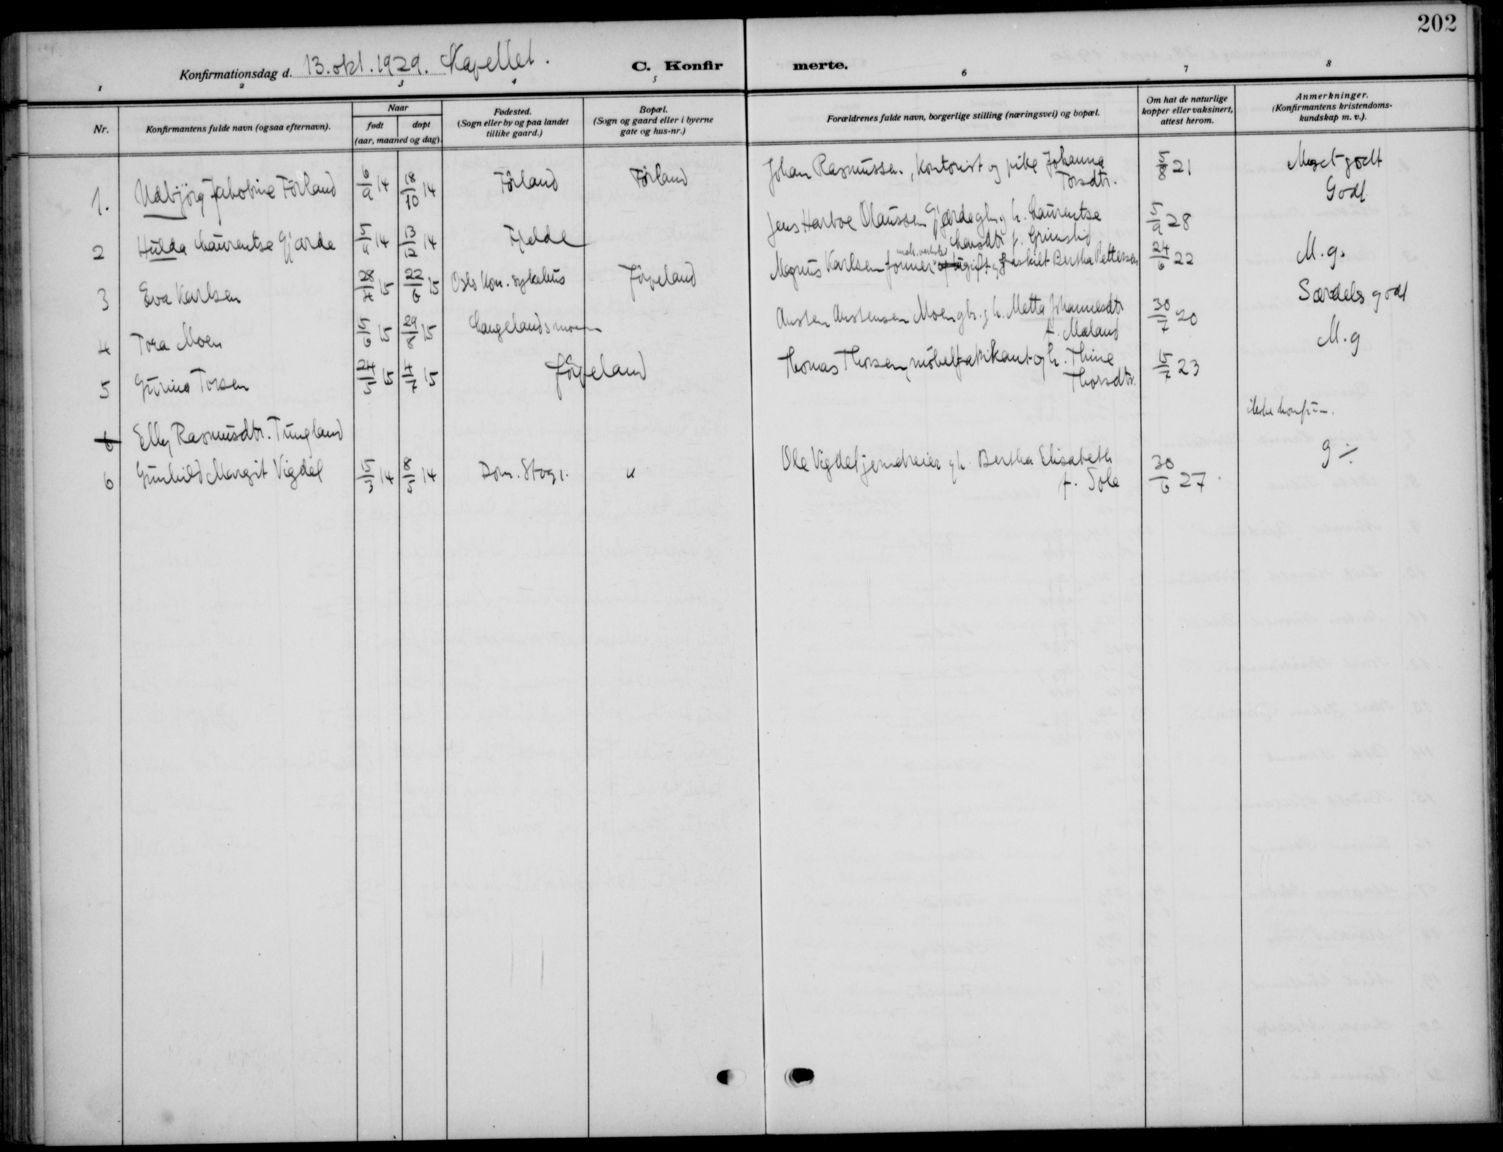 202
Konfirmationsdag d. 13. okt. 1929. Kapellet.
C. Konfirmerte.
1 2 3 4 5 6 7 8
Nr.
Konfirmantens fulde navn (ogsaa efternavn).
Naar
født
døpt
(aar, maaned og dag).
Fødested.
(Sogn eller by og paa landet
tillike gaard.)
Bopæl.
(Sogn og gaard eller i byerne
gate og hus-nr.)
Forældrenes fulde navn, borgerlige stilling (næringsvei) og bopæl.
Om hat de naturlige
kopper eller vaksinert,
attest herom.
Anmerkninger.
(Konfirmantens kristendoms-
kundskap m. v.).
1. Jakobine Förland 6/9 14 18/10 14 Förland Förland Johan Rasmussen, kontorist og pike Johanne 5/8 21 Meget godt
Torsdtr.
Godt
2 Hulda Laurentse Gjærde 5/9 14 13/12 14 Fjelde Jens Olaussen Gjærde h. Laurentse 5/9 28
f. Grimslid
3 Eva Karlsen 28/4 15 22/6 15 Oslo Kom. sykehus Jøpeland Magnus Karlsen former Bertha Pettersen 24/6 22 M. g.
4 Tora Moen 5/6 15 29/8 15 Langelandsmoen Austen Austensen Moen h. Metta Johannesdtr 30/7 20 Særdeles godt
f. Mæland
5 Torsen 24/5 15 4/7 15 Jøpeland Thomas Thorsen, møbelfabrikant og h. Thine 15/7 23 M. g
Thorsdtr.
6 Elly Rasmusdtr. Tungland ikke konf.
6 Gunhild Margit Vigdel 15/3 14 8/5 14 Dom. Stvgr. " Ole Vigdel h. Bertha Elisabeth 30/6 27 g ÷
f. Sole